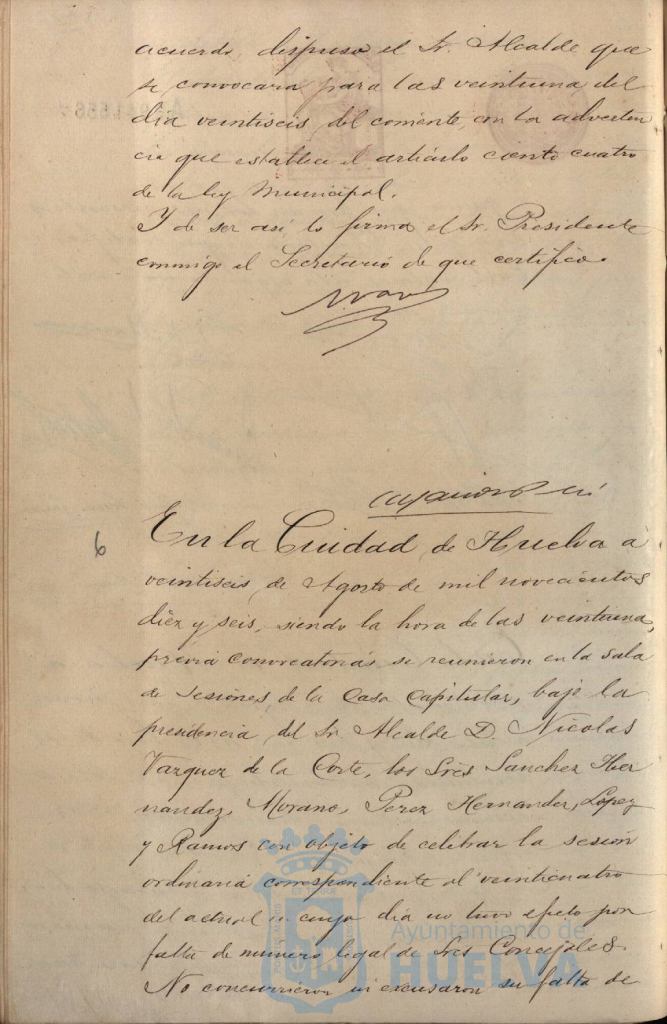 acuerdo dispuso el Sr. Alcalde que
se convocara para las veintiuna del
dia veintiseis del corriente, con la adverten
cia que establece el articulo ciento cuatro
de la ley Municipal.
Y de ser asi lo firma el Sr. Presidente
conmigo el Secretario de que certifico.
6
En la Ciudad de Huelva a
veintiseis de Agosto de mil novecientos
diez y seis, siendo la hora de las veintiuna,
previa convocatoria se reunieron en la sala
de sesiones de la Casa Capitular, bajo la
presidencia del Sr Alcalde D. Nicolas
Vazquez de la Corte, los Sres Sanchez Her
nandez, Morano, Perez Hernandez, López
y Ramos con objeto de celebrar la sesión
ordinaria correspondiente al veinticuatro
del actual en cuyo dia no tuvo efecto por
falta de número legal de Sres Concejales.
No concurrieron ni excusaron su falta de
Ayuntamiento de
HUELVA